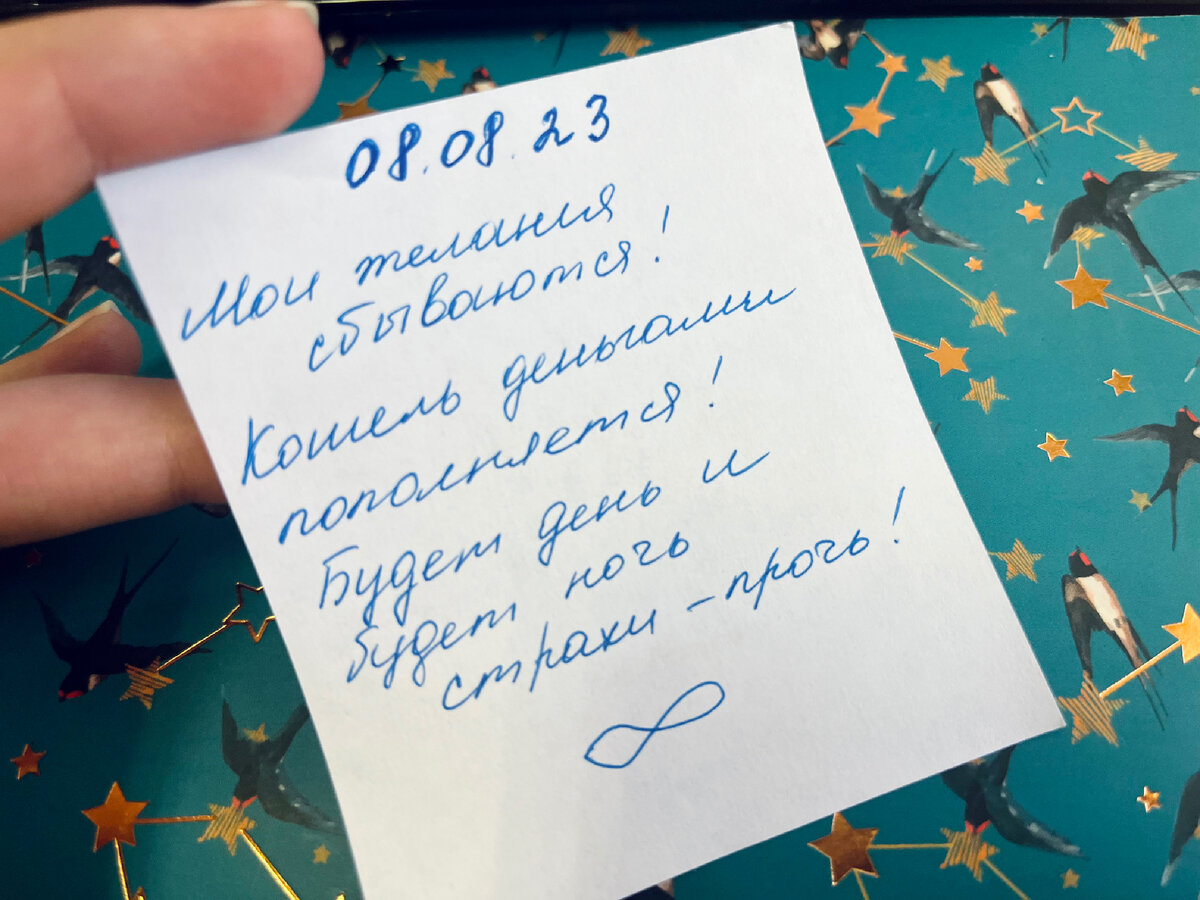 08.08.23
Мои желания
сбываются!
Кошель деньгами
пополняется!
Будет день и
будет ночь
страхи - прочь!